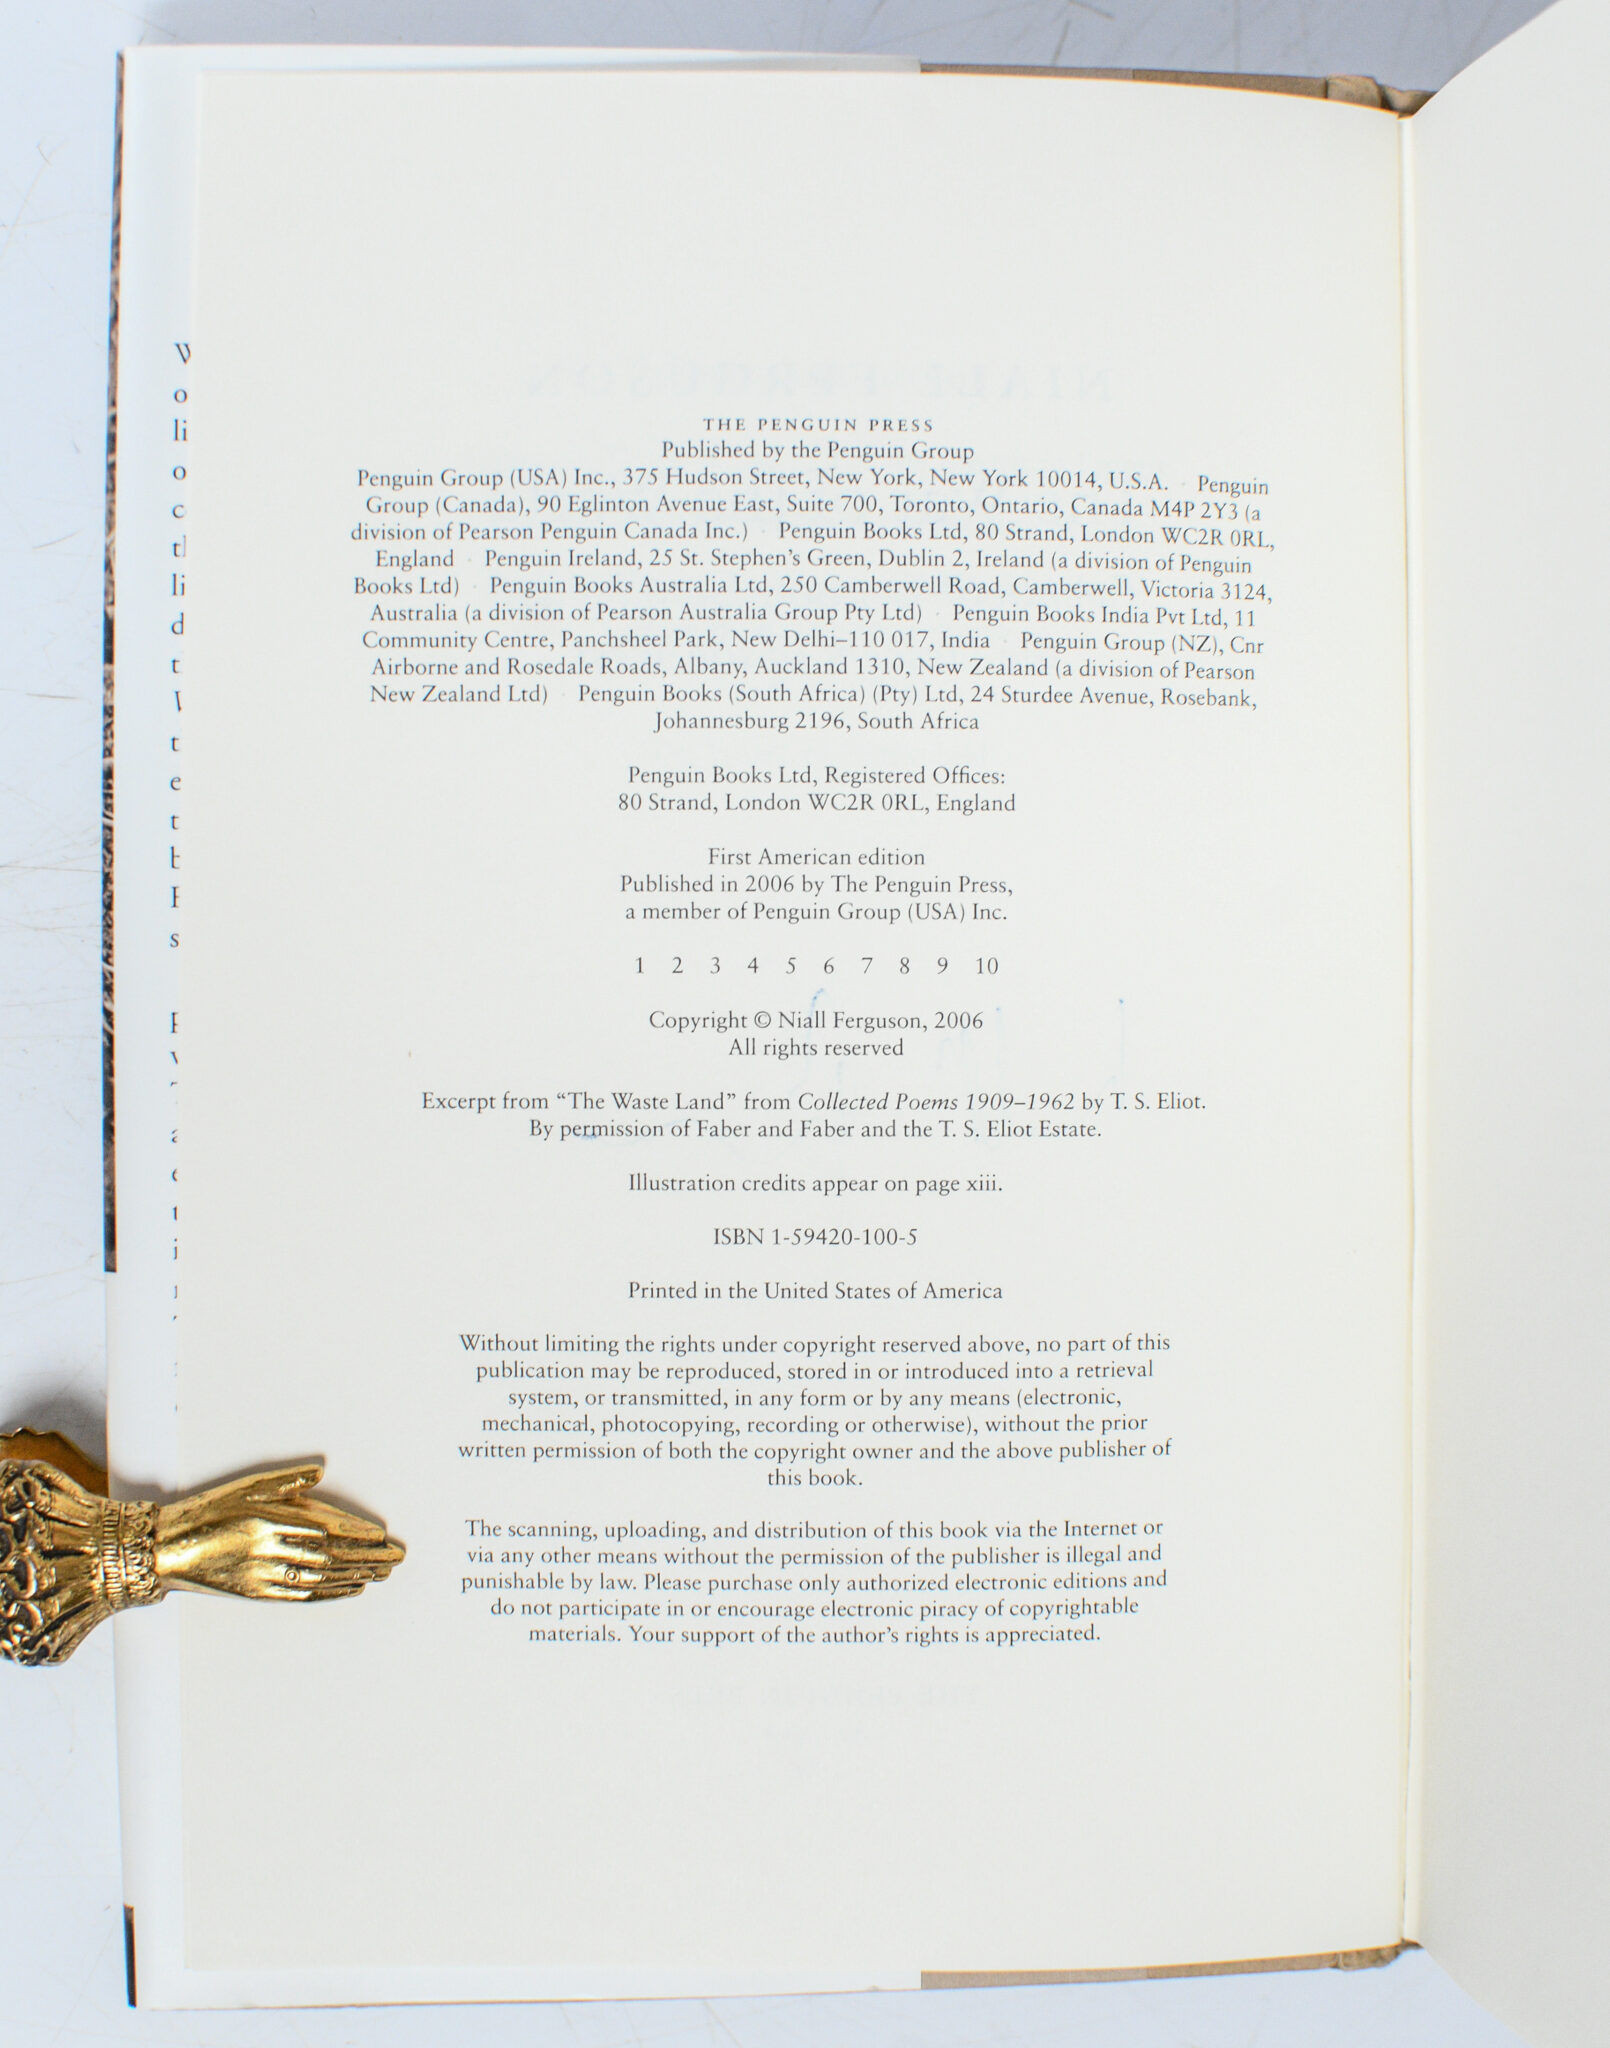 THE PENGUIN PRESS
Published by the Penguin Group
Penguin Group (USA) Inc., 375 Hudson Street, New York, New York 10014, U.S.A. · Penguin
Group (Canada), 90 Eglinton Avenue East, Suite 700, Toronto, Ontario, Canada M4P 2Y3 (a
division of Pearson Penguin Canada Inc.) · Penguin Books Ltd, 80 Strand, London WC2R 0RL,
England · Penguin Ireland, 25 St. Stephen's Green, Dublin 2, Ireland (a division of Penguin
Books Ltd) · Penguin Books Australia Ltd, 250 Camberwell Road, Camberwell, Victoria 3124,
Australia (a division of Pearson Australia Group Pty Ltd) · Penguin Books India Pvt Ltd, 11
Community Centre, Panchsheel Park, New Delhi–110 017, India · Penguin Group (NZ), Cnr
Airborne and Rosedale Roads, Albany, Auckland 1310, New Zealand (a division of Pearson
New Zealand Ltd) · Penguin Books (South Africa) (Pty) Ltd, 24 Sturdee Avenue, Rosebank,
Johannesburg 2196, South Africa
Penguin Books Ltd, Registered Offices:
80 Strand, London WC2R 0RL, England
First American edition
Published in 2006 by The Penguin Press,
a member of Penguin Group (USA) Inc.
1 2 3 4 5 6 7 8 9 10
Copyright © Niall Ferguson, 2006
All rights reserved
Excerpt from “The Waste Land” from Collected Poems 1909–1962 by T. S. Eliot.
By permission of Faber and Faber and the T. S. Eliot Estate.
Illustration credits appear on page xiii.
ISBN 1-59420-100-5
Printed in the United States of America
Without limiting the rights under copyright reserved above, no part of this
publication may be reproduced, stored in or introduced into a retrieval
system, or transmitted, in any form or by any means (electronic,
mechanical, photocopying, recording or otherwise), without the prior
written permission of both the copyright owner and the above publisher of
this book.
The scanning, uploading, and distribution of this book via the Internet or
via any other means without the permission of the publisher is illegal and
punishable by law. Please purchase only authorized electronic editions and
do not participate in or encourage electronic piracy of copyrightable
materials. Your support of the author's rights is appreciated.